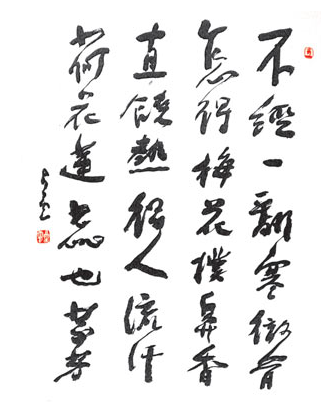 不經一翻寒徹骨
怎得梅花撲鼻香
直饒熱得人流汗
荷花蓮蕊也芬芳